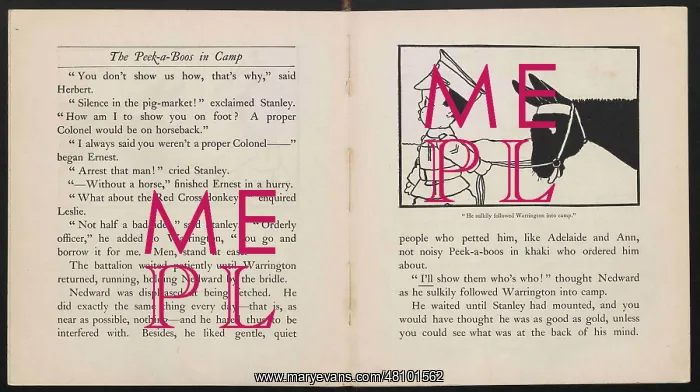 The Peek-a-Boos in Camp
“ You don’t show us how, that’s why,” said
Herbert.
“ Silence in the pig-market! ” exclaimed Stanley.
“ How am I to show you on foot? A proper
Colonel would be on horseback.”
“ I always said you weren’t a proper Colonel——”
began Ernest.
“ Arrest that man! ” cried Stanley.
“—Without a horse,” finished Ernest in a hurry.
“ What about the Red Cross donkey ” enquired
Leslie.
“ Not half a bad idea ” said Stanley “ Orderly
officer,” he added to Warrington, “ you go and
borrow it for me. Men, stand at ease.”
The battalion waited patiently until Warrington
returned, running, holding Nedward by the bridle.
Nedward was displeased at being fetched. He
did exactly the same thing every day—that is, as
near as possible, nothing—and he hated thus to be
interfered with. Besides, he liked gentle, quiet
ME
PL
ME
PL
“ He sulkily followed Warrington into camp.”
people who petted him, like Adelaide and Ann,
not noisy Peek-a-boos in khaki who ordered him
about.
“ I’ll show them who’s who! ” thought Nedward
as he sulkily followed Warrington into camp.
He waited until Stanley had mounted, and you
would have thought he was as good as gold, unless
you could see what was at the back of his mind.
www.maryevans.com/48101562